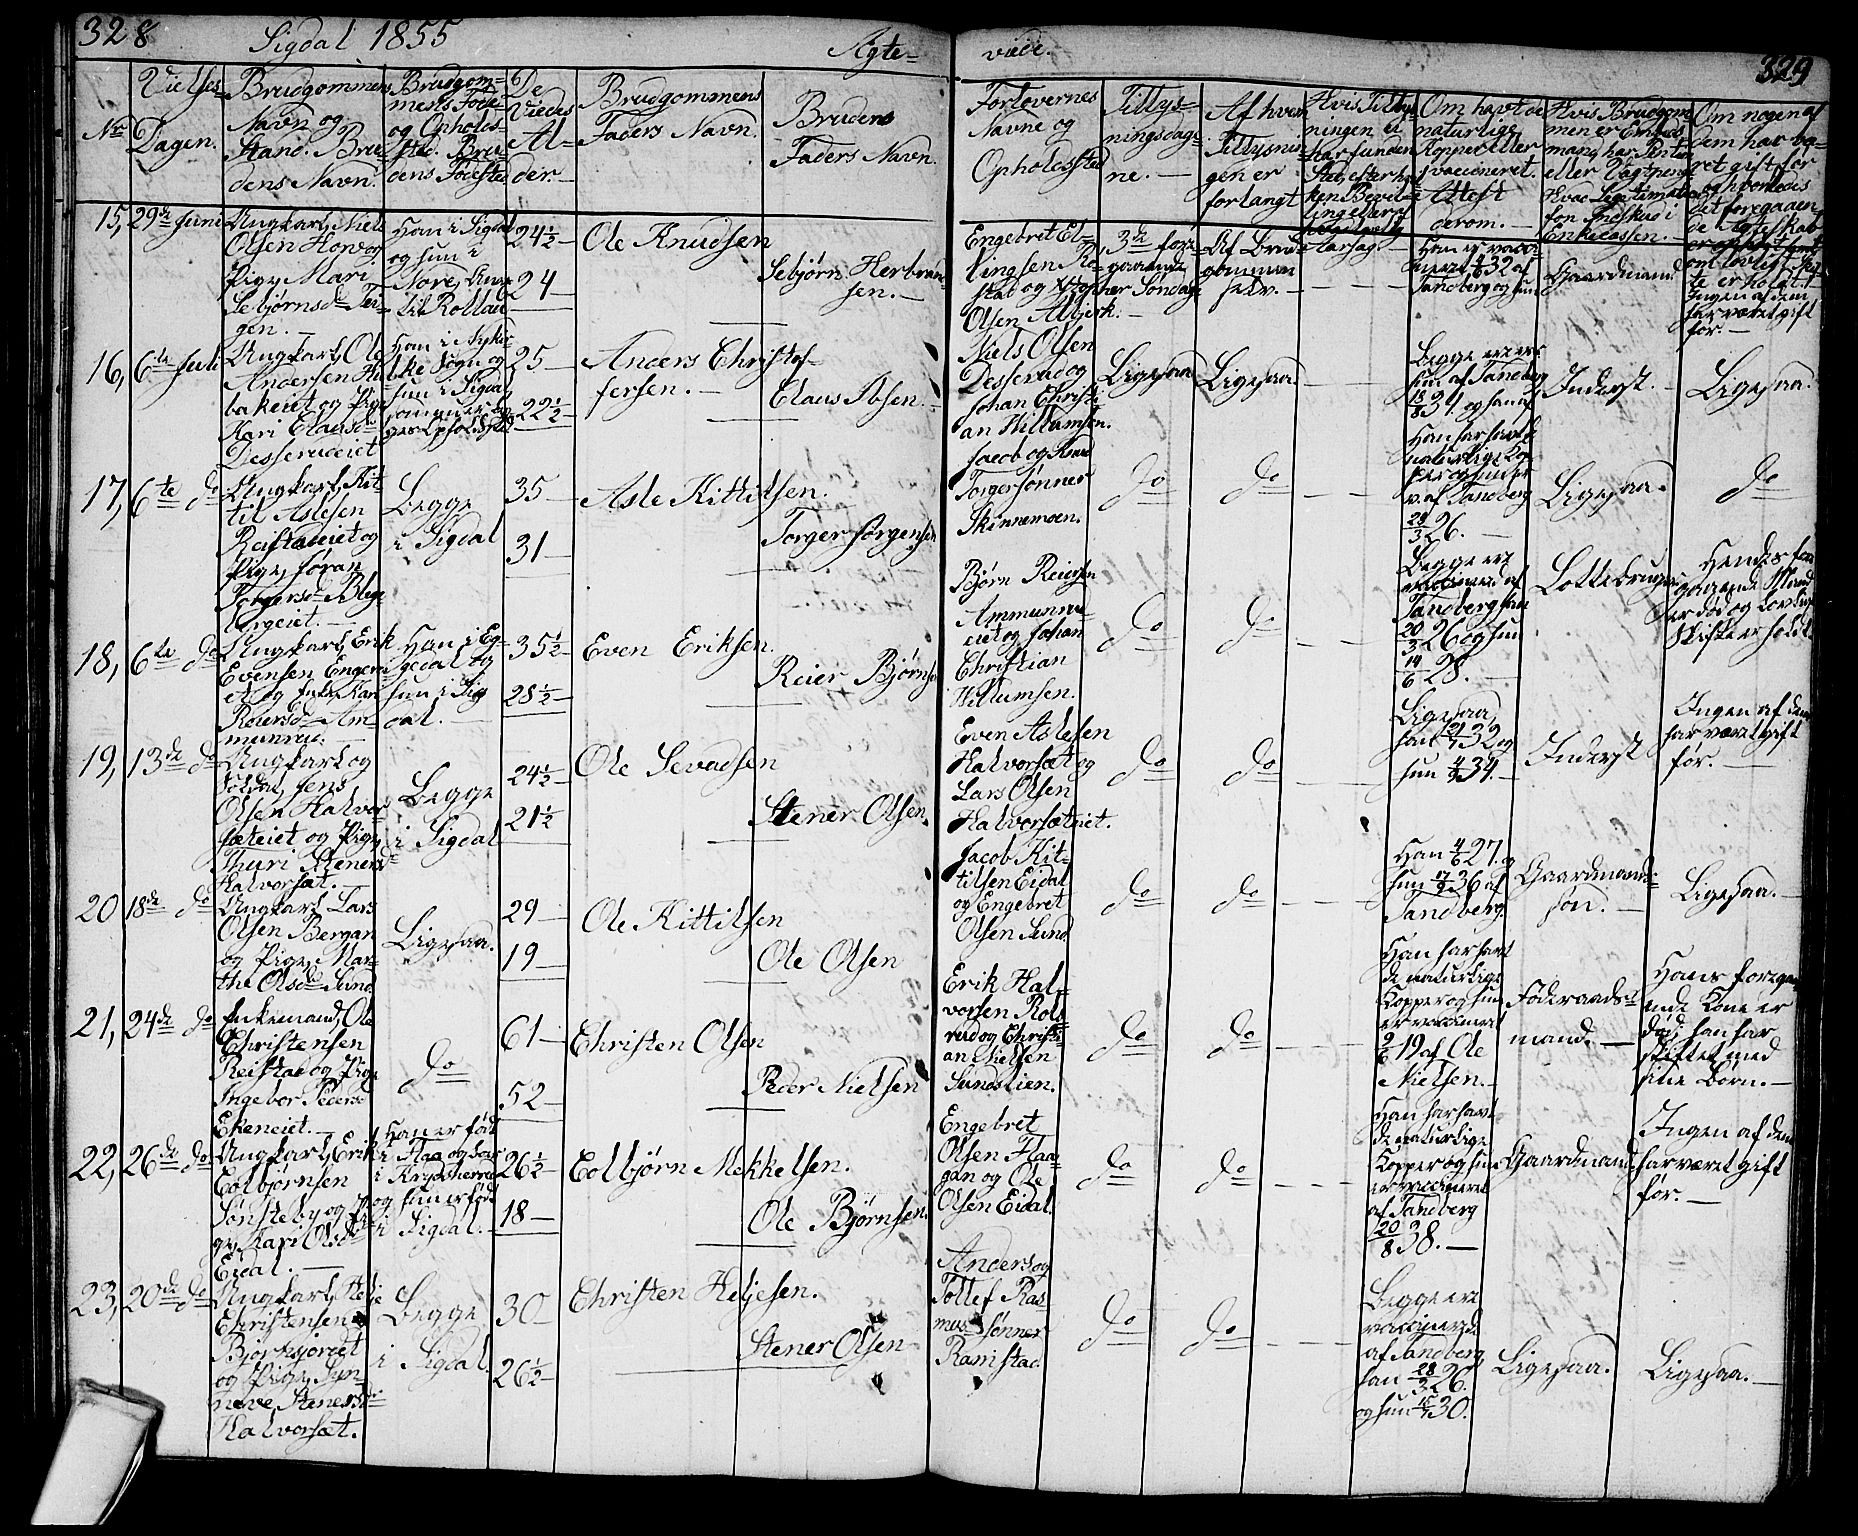 328
Sigdal 1855
Ægte-
viede.
329
No
Vielses-
Dagen.
Brudgommens
Navn og
Stand. Bru-
dens Navn.
Brudgom-
mens Føde-
og Opholds-
sted. Bru-
dens Fødested
De
Viedes
Al-
der.
Brudgommens
Faders Navn.
Brudens
Faders Navn.
Forlovernes
Navne og
Opholdssted
Tillys-
ningsdage-
ne. —
Af hvem
Tillysnin-
gen er
forlangt
Hvis Tillys-
ningen ei
har funden
Sted, efter hvil-
ken Bevil-
ling
Om havt de
naturlige
Kopper eller
vaccineret.
Attest
derom. —
Hvis Brudgom-
men er Embeds-
mand, har
eller
Hvad Legitimation
for
Enkekassen. —
Om nogen af
dem har væ-
ret gift før
og hvorledes
det foregaaen-
de Ægteskab
15, 29de Juni
Ungkarl, Niels
Olsen Horv og
Pige, Mari
Sebjørnsd. Tei-
gen. —
Han i Sigdal
og hun i
Nore,
til Rollau
24½ —
24 —
Ole Knudsen
Sebjørn Herbran-
sen. —
Engebret El-
lingsen Ro-
stad og
Olsen Albjerk. —
3de fore-
gaaende
Søndage
Af Brud-
gommen
selv. —
Han er vacci-
neret 4/6 32 af
Tandberg og hun
Gaardmand
Ingen af dem
har været gift
før. —
16, 6te Juli
Ungkarl, Ole
Andersen Hu-
bakeiet og Pige
Kari Clausd.
Desserudeiet
Han i Nykir-
ke Sogn og
hun i Sigdal,
25 —
22½ —
Anders Christof-
fersen. —
Claus Ibsen. —
Niels Olsen
Desserud og
Johan Christi-
an Willumsen.
Ligesaa
Ligesaa
Begge ere
hun af Tandberg
18/8 34. og han af
Inderst. —
Ligesaa.
17, 6te do
Ungkarl, Kit-
til Aslesen
Reistadeiet og
Pige, Jøran
Torgersd.
Begge
i Sigdal
35 —
31 —
Asle Kittilsen.
Torger Jørgensen
Jacob og Knud
Torgersønner
Skinnemoen.
do
do
Han har havt
naturlige Kop-
per og hun er
v. af Tandberg
28/3 26. —
Ligesaa.
do
18, 6te do
Ungkarl, Erik
Evensen Enger-
et og Enke, Kari
Reiersd. Am-
munrud.
Han i Eg-
gedal og
hun i Sig-
dal. —
35½ —
28½ —
Even Eriksen.
Reier Bjørnsen
Bjørn Reiersen
Ammunru-
eiet og Johan
Christian
Willumsen.
do
do
Begge ere
vaccinered af
Tandberg han
20/3 26 og hun
14/6 28. —
Lottebruger
Hendes fore-
gaaende Mand
er død og lovlig
Skifte er holdt
19, 13de do
Ungkarl og
Soldat, Jens
Olsen Halvor-
sæteiet og Pige,
Thuri Stenersd.
Halvorsæt. —
Begge
i Sigdal
24½ —
21½
Ole Sevadsen
Stener Olsen.
Even Aslesen
Halvorsæt og
Lars Olsen
Halvorsæteiet.
do
do
Ligesaa,
han 21/7 32 og
hun 4/9 34. —
Inderst
Ingen af dem
har været gift
før. —
20 18de do
Ungkarl Lars
Olsen Bergan
og Pige, Mar-
the Olsd. Sund.
Ligesaa.
29 —
19 —
Ole Kittilsen
Ole Olsen
Jacob Kit-
tilsen Eidal
og Engebret
Olsen Sund.
do
do
Han 4/6 27. og
hun 17/9 36 af
Tandberg.
Gaardmands-
søn. —
Ligesaa. —
21, 24de do
Enkemand, Ole
Christensen
Reistad og Pige
Ingebor Pedersd.
Ekeneiet. —
do
61 —
52 —
Christen Olsen
Peder Nielsen
Erik Hal-
vorsen Rols-
rud og Christi-
an Nielsen
Sundslien.
do
do
Han har havt
de naturlige
Kopper og hun
er vaccineret
9/6 19 af Ole
Nielsen. —
Føderaads-
mand. —
Hans foregaa-
ende Kone er
død, han har
skiftet med
sine Børn. —
22, 26de do
Ungkarl, Erik
Eolbjørnsen
Sønsteby og Pi-
ge, Kari Olsd.
Eidal. —
Han er født
i Flaa og
i Krydsherred
og hun er født
i Sigdal. —
26½ —
18 —
Eolbjørn Mekkelsen.
Ole Bjørnsen.
Engebret
Olsen Haa-
gan og Ole
Olsen Eidal.
do
do
Han har havt
de naturlige
Kopper og hun
er vaccineret
af Tandberg
20/8 38. —
Gaardmand
Ingen af dem
har været gift
før. —
23, 20de do
Ungkarl, Helje
Christensen
og Pige, Syn-
neve Stenersd.
Halvorsæt.
Begge
i Sigdal
30 —
26½ —
Christen Heljesen.
Stener Olsen
Anders og
Tollef Ras-
mussønner
Ramstad
do
do
Begge ere
vaccinerede
af Tandberg,
han 28/3 26.
og hun 15/7 30.
Ligesaa.
Ligesaa. —